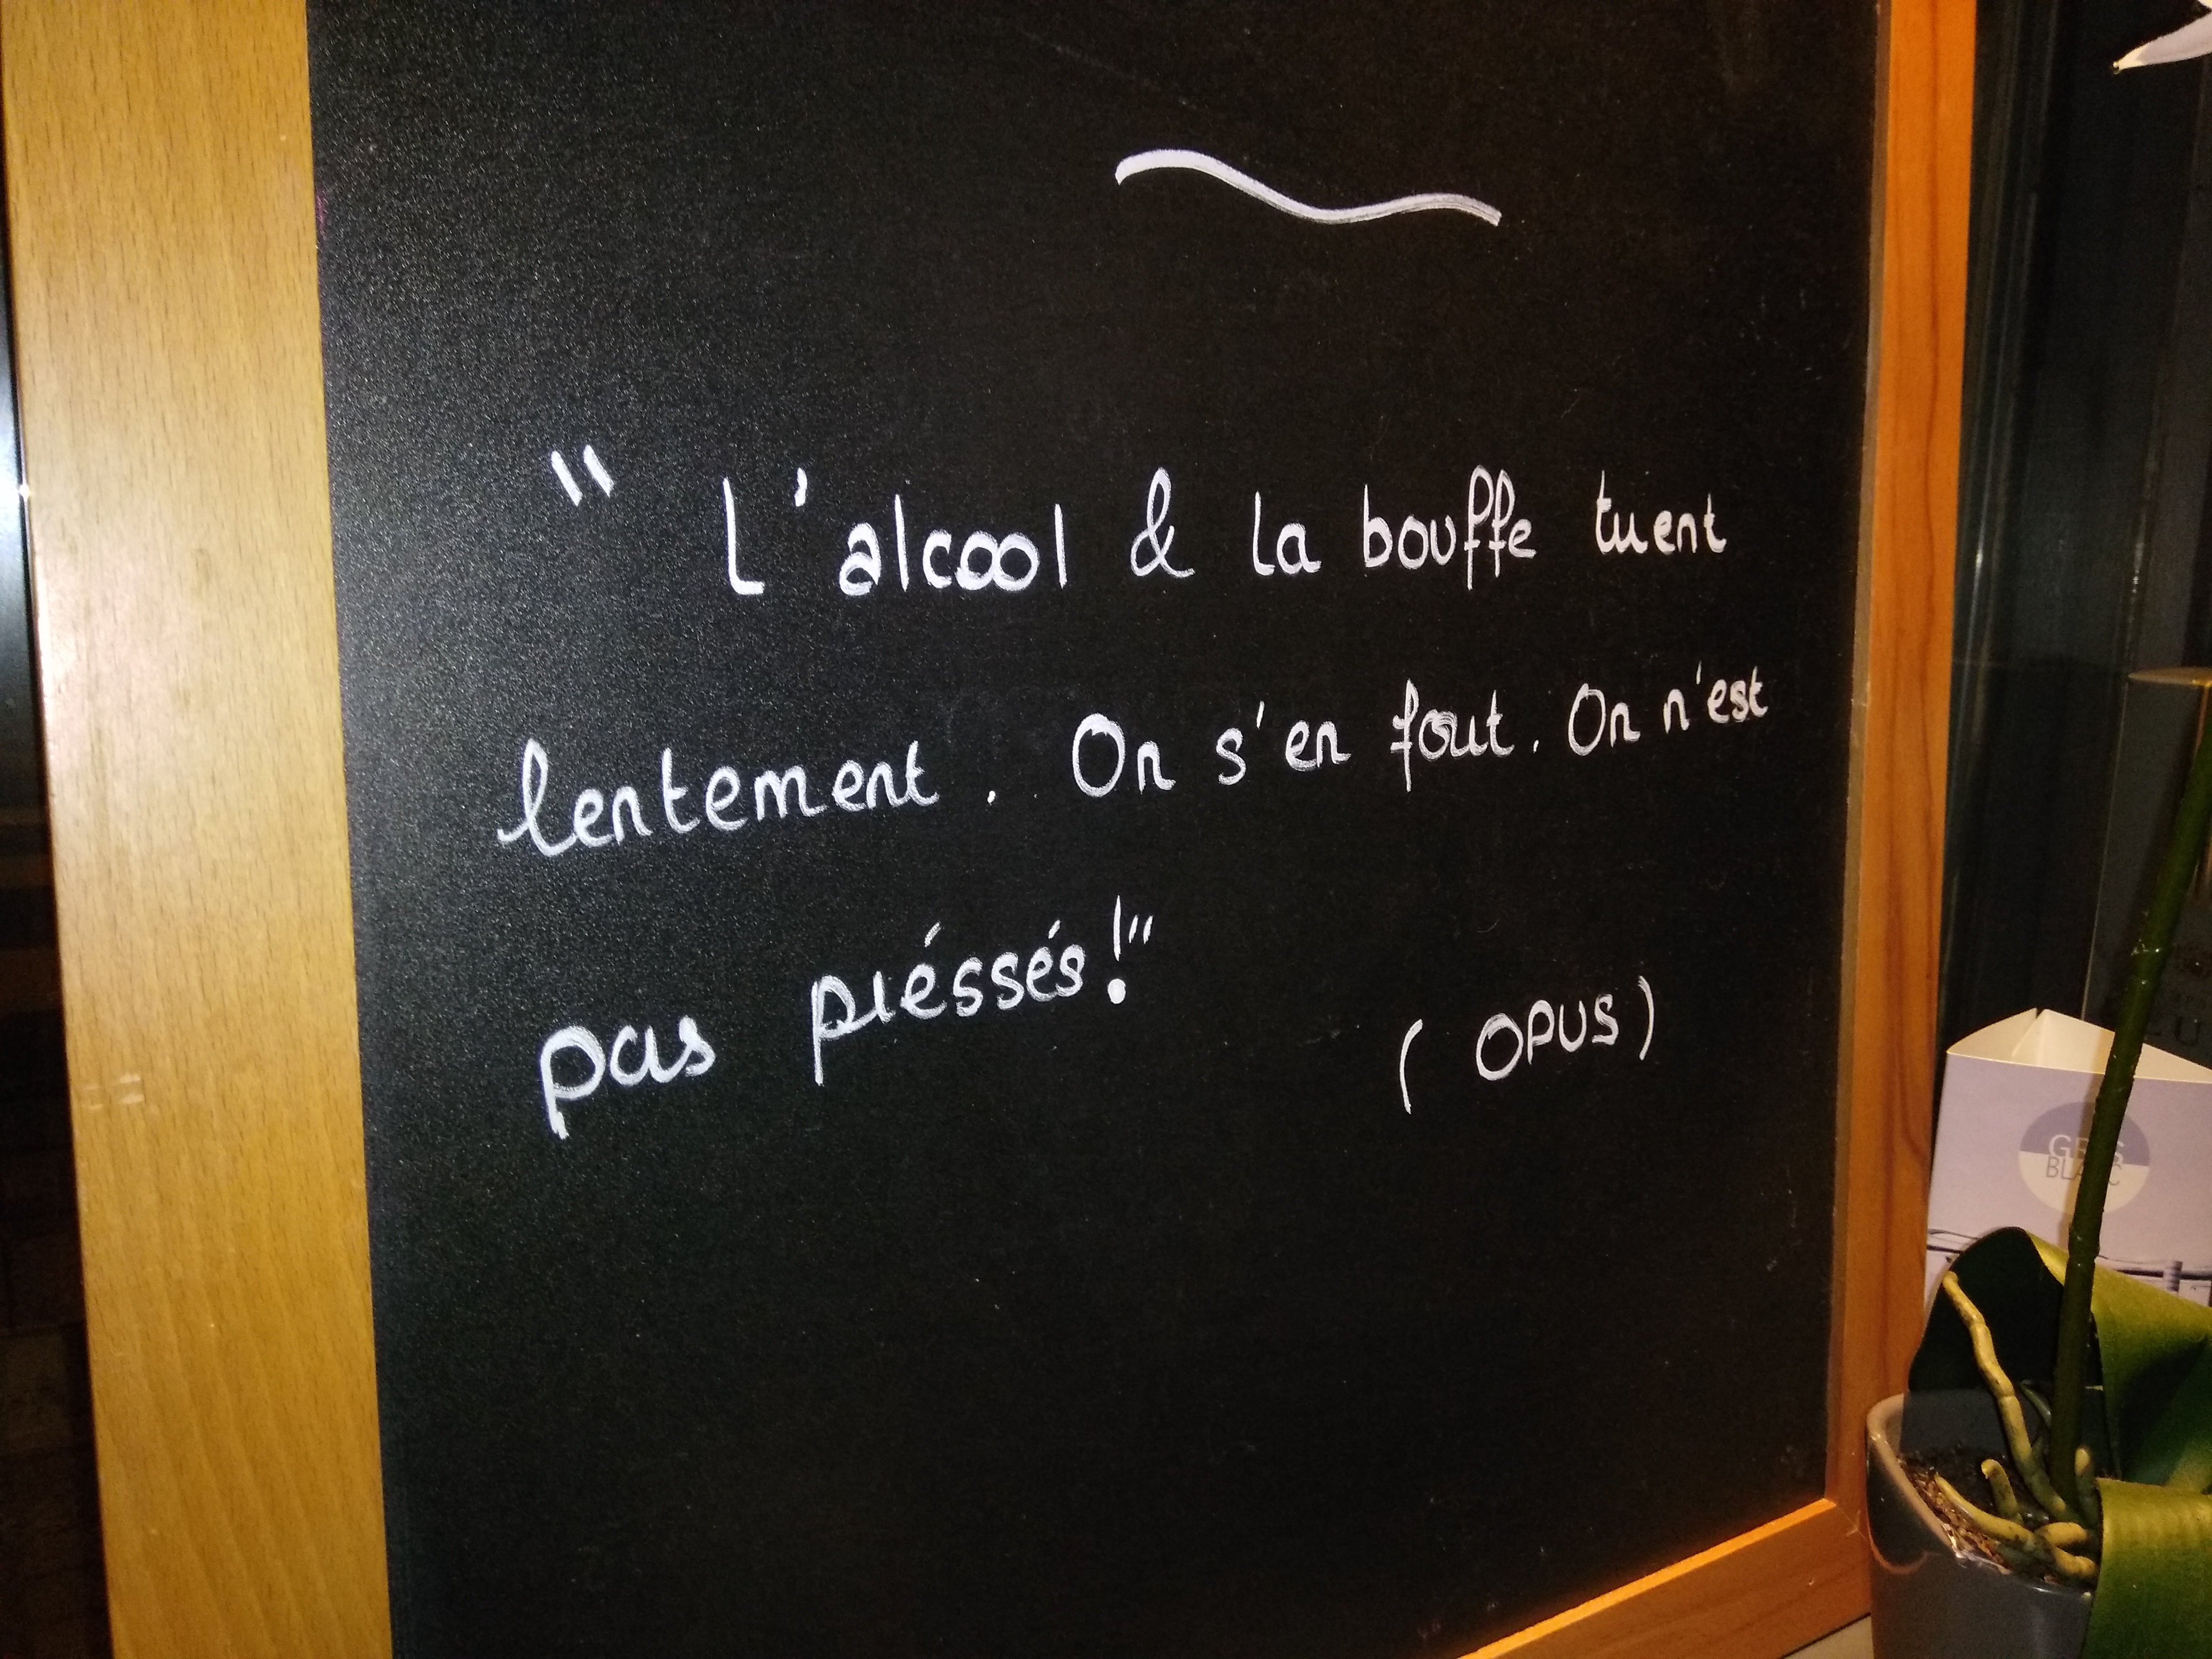 " L'alcool & la bouffe tuent
lentement. On s'en fout. On n'est
pas préssés!"
( OPUS )
GRIS
BLANC